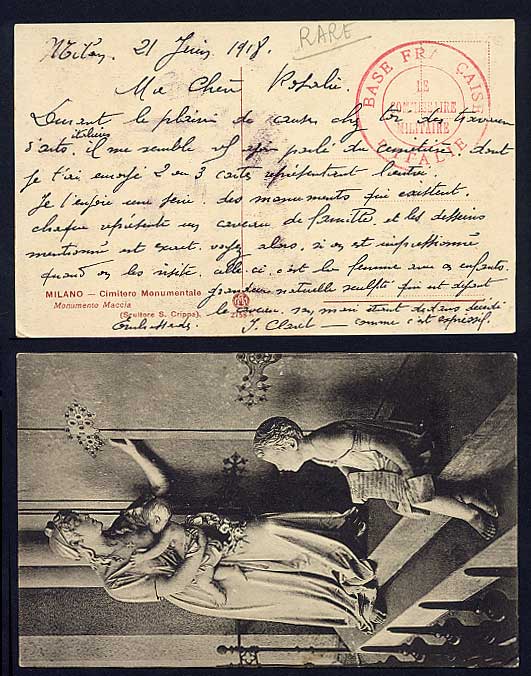 Milan, 21 Juin 1918.
RARE
BASE FRANÇAISE
LE
COMMISSAIRE
MILITAIRE
ITALIE
Ma Chère Rosalie.
Devant le plaisir de causer chez toi des travaux
italiens
d'arts, il me semble parlé du cemetière, dont
je t'ai envoyé 2 ou 3 cartes représentant l'entrée.
Je t'envoie une série des monuments qui existent.
chaque représente un caveau de famille, et les dessins
mentionné est exact. voyez alors, si on est impressionné
quand on les visite. celle-ci, c'est la femme avec ses enfants.
MILANO — Cimitero Monumentale
grandeur naturelle sculpté qui est devant
Monumento Maccia
le caveau. son mari étant dedans décédé
(Scultore S. Crippa).
J. Claret — comme c'est expressif.